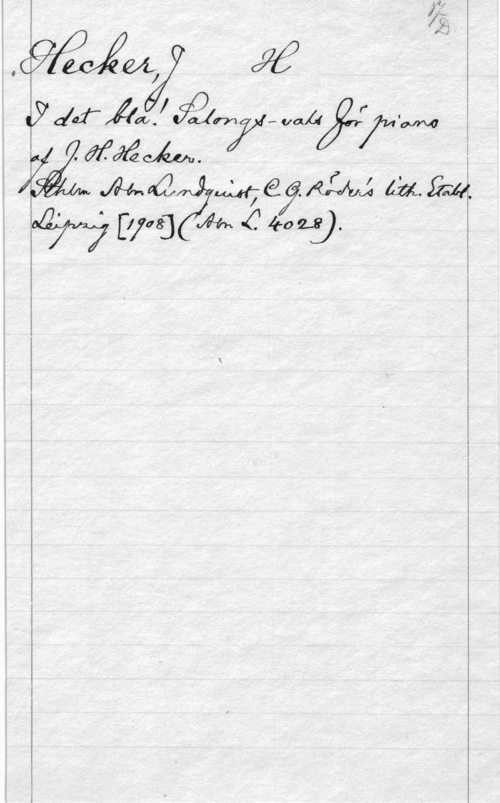 Hecker, J H
I det blå! Salongs-vals för piano
af J. H. Hecker.
Sthlm Abm Lundquist, C. G. Röder's lith. Etabl.
Leipzig [1908] (Abm L. 4028).